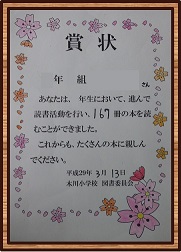 賞状
年 組 さん
あなたは、 年生において、進んで
読書活動を行い、167冊の本を読
むことができました。
これからも、たくさんの本に親しん
でください。
平成29年3月13日
木川小学校 図書委員会